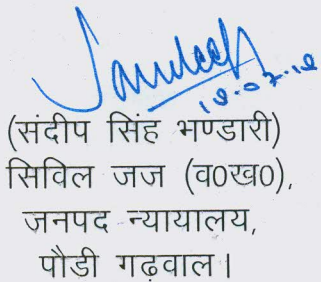 Sandeep
(संदीप सिंह भण्डारी)
सिविल जज (व0ख0),
जनपद न्यायालय,
पौडी गढ़वाल।